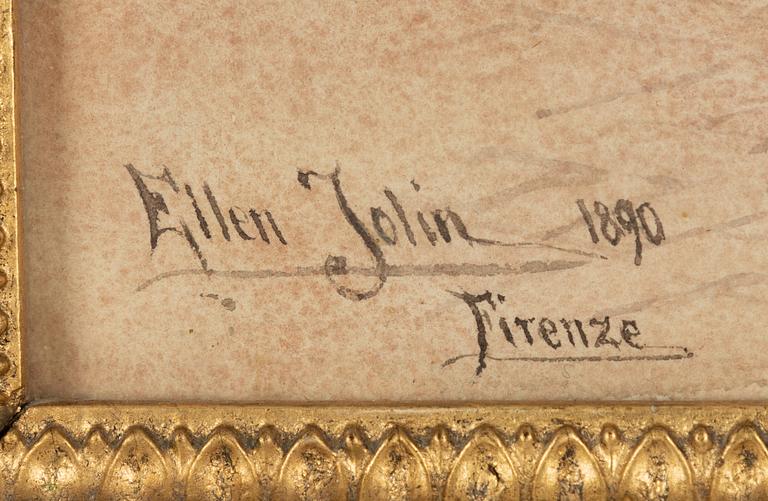 Ellen Jolin 1890
Firenze